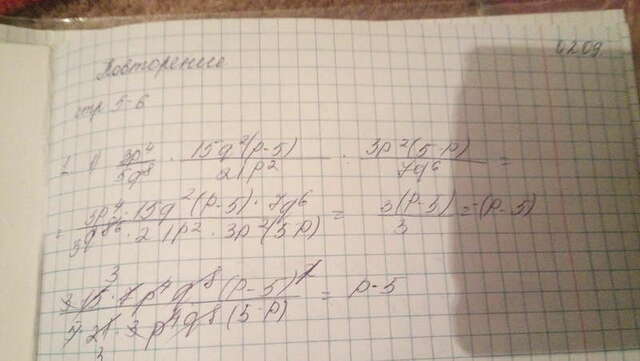 4209
Повторение
стр 5-6
1 1) 3p⁴/5q⁸ · 15q²(p-5)/21p² : 3p²(5-p)/7q⁶ =
= 3p⁴ · 15q²(p-5) · 7q⁶ / 5q⁸ · 21p² · 3p²(5-p) = 3(p-5)/3 = -(p-5)
3
3 15 · 7 p⁴ q⁸ (p-5) / 7 21 · 3 p⁴ q⁸ (5-p) = p-5
3